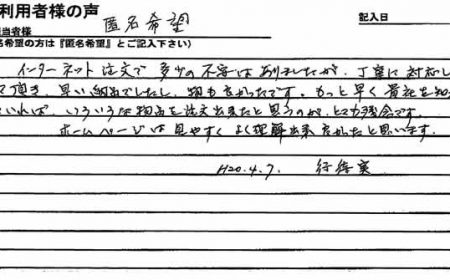 利用者様の声
匿名希望
記入日
担当者様
名希望の方は『匿名希望』とご記入下さい)
インターネット注文で多少の不安はありましたが、丁寧に対応し
て頂き、早い納品でしたし、物も良かったです。もっと早く貴社を知っ
ていれば、いろいろな物品を注文出来たと思うのが、とても残念です。
ホームページは見やすくよく理解出来良かったと思います。
H20.4.7.